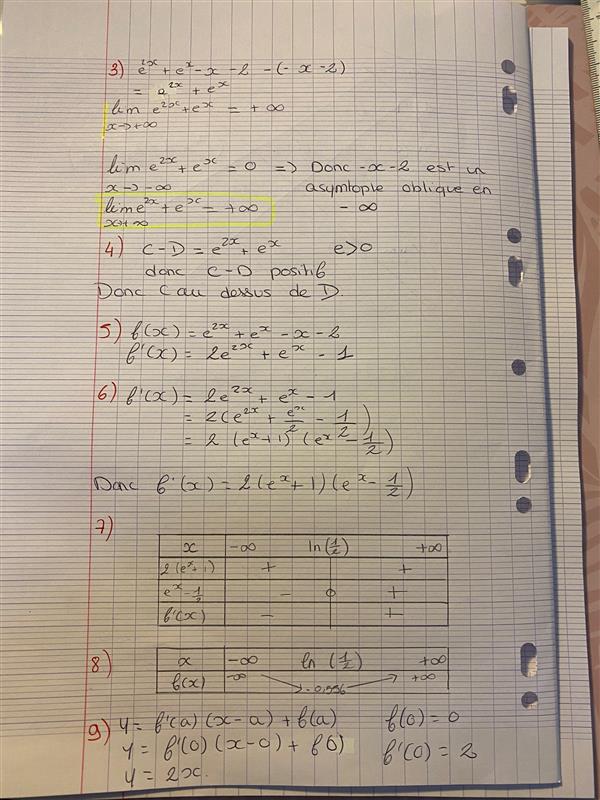 3) e^2x + e^x - x - 2 - (- x - 2)
= e^2x + e^x
lim e^2x + e^x = + ∞
x→+∞
lim e^2x + e^x = 0 => Donc -x - 2 est un
x→ -∞ asymptople oblique en
lim e^2x + e^x = +∞ - ∞
x→+∞
4) C - D = e^2x + e^x e>0
donc C - D positif
Donc C au dessus de D.
5) f(x) = e^2x + e^x - x - 2
f'(x) = 2e^2x + e^x - 1
6) f'(x) = 2e^2x + e^x - 1
= 2(e^2x + e^x/2 - 1/2)
= 2 (e^x+1) (e^x - 1/2)
Donc f'(x) = 2(e^x + 1)(e^x - 1/2)
7)
x -∞ ln(1/2) +∞
2(e^x+1) + +
e^x - 1/2 - 0 +
f'(x) - +
8)
x -∞ ln(1/2) +∞
f(x) -∞ +∞
9) y = f'(a) (x - a) + f(a) f(0) = 0
y = f'(0) (x - 0) + f(0) f'(0) = 2
y = 2x.